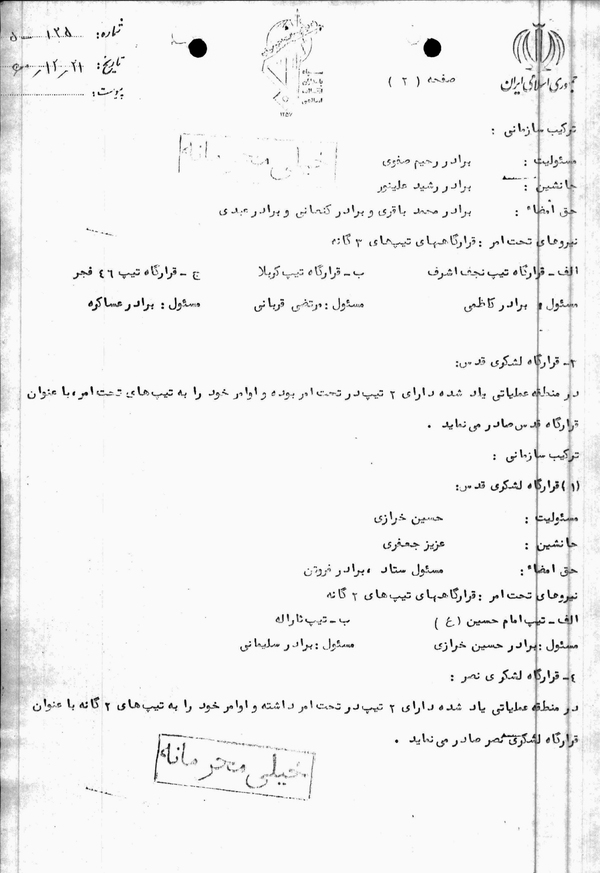 شماره: ۱۳۵
تاریخ: ۲۱/۱۲/
پیوست:
سپاه پاسداران انقلاب اسلامی
۱۳۵۷
صفحه ( ۲ )
جمهوری اسلامی ایران
ترکیب سازمانی :
خیلی محرمانه
مسئولیت : برادر رحیم صفوی
جانشین : برادر رشید علینور
حق امضاء : برادر محمد باقری و برادر کنعانی و برادر عبدی
نیروهای تحت امر : قرارگاههای تیپهای ۳ گانه
الف - قرارگاه تیپ نجف اشرف ب - قرارگاه تیپ کربلا ج - قرارگاه تیپ ٤٦ فجر
مسئول: برادر کاظمی مسئول: مرتضی قربانی مسئول: برادر عساکره
۳- قرارگاه لشکری قدس:
در منطقه عملیاتی یاد شده دارای ۲ تیپ در تحت امر بوده و اوامر خود را به تیپ‌های تحت امر، با عنوان
قرارگاه قدس صادر می نماید .
ترکیب سازمانی :
(۱) قرارگاه لشکری قدس:
مسئولیت : حسین خرازی
جانشین : عزیز جعفری
حق امضاء : مسئول ستاد ، برادر فروتن
نیروهای تحت امر : قرارگاههای تیپ های ۲ گانه
الف - تیپ امام حسین (ع) ب - تیپ ثاراله
مسئول: برادر حسین خرازی مسئول: برادر سلیمانی
٤- قرارگاه لشکری نصر :
در منطقه عملیاتی یاد شده دارای ۲ تیپ در تحت امر داشته و اوامر خود را به تیپ‌های ۲ گانه با عنوان
قرارگاه لشکری نصر صادر می نماید .
خیلی محرمانه